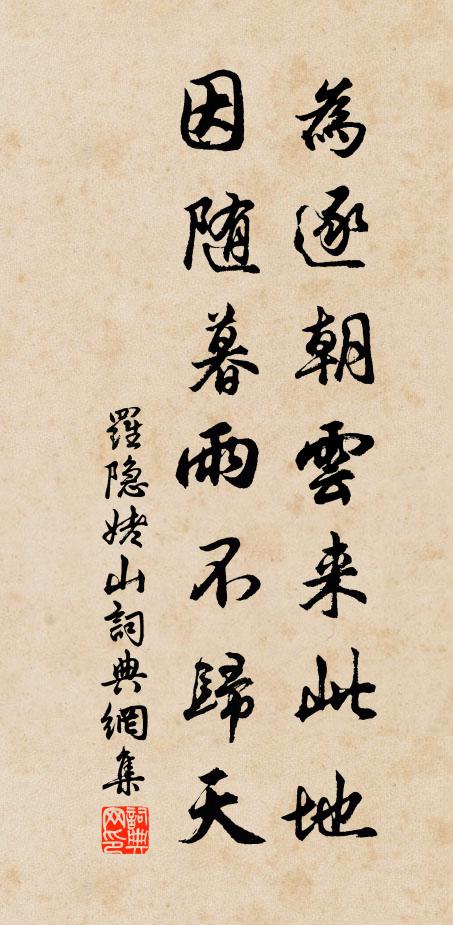 為逐朝雲来此地
因随暮雨不歸天
羅隐姥山詞典網集
詞典网印